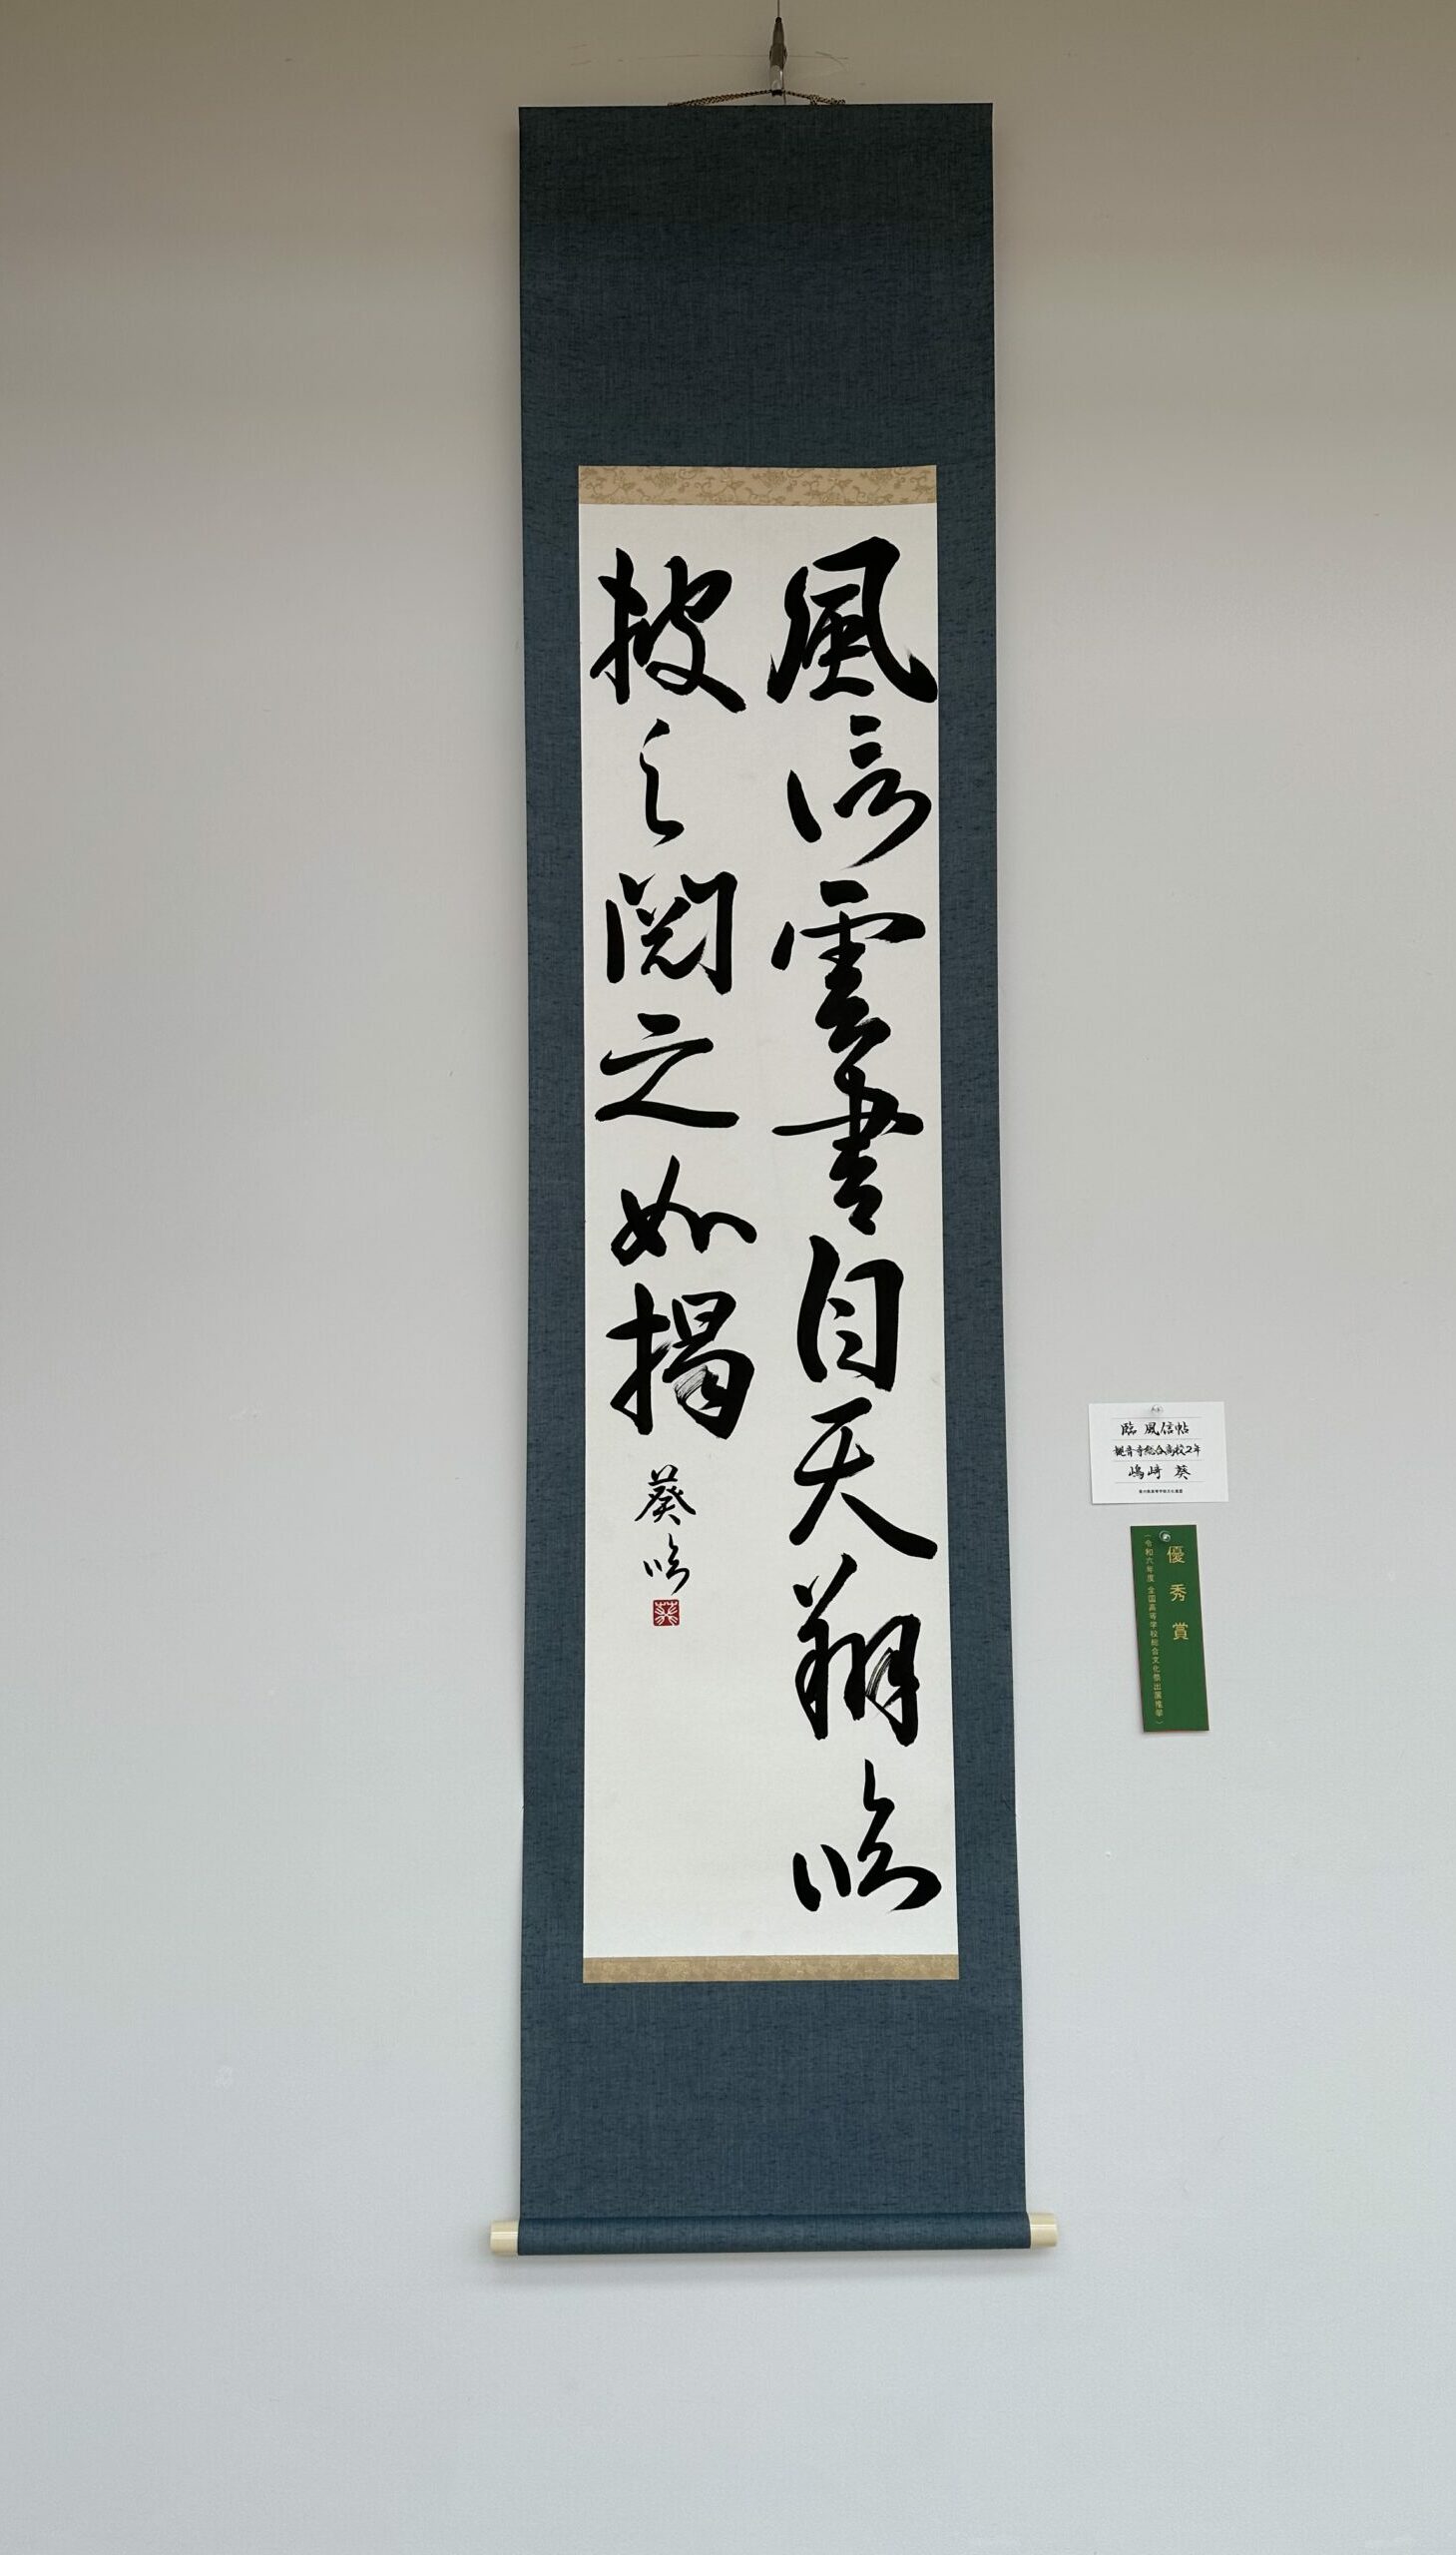 風信雲書自天翔臨
披之閲之如揭
葵臨
臨 風信帖
観音寺総合高校2年
嶋﨑 葵
香川県高等学校文化連盟
優秀賞
(令和六年度 全国高等学校総合文化祭出展推挙)